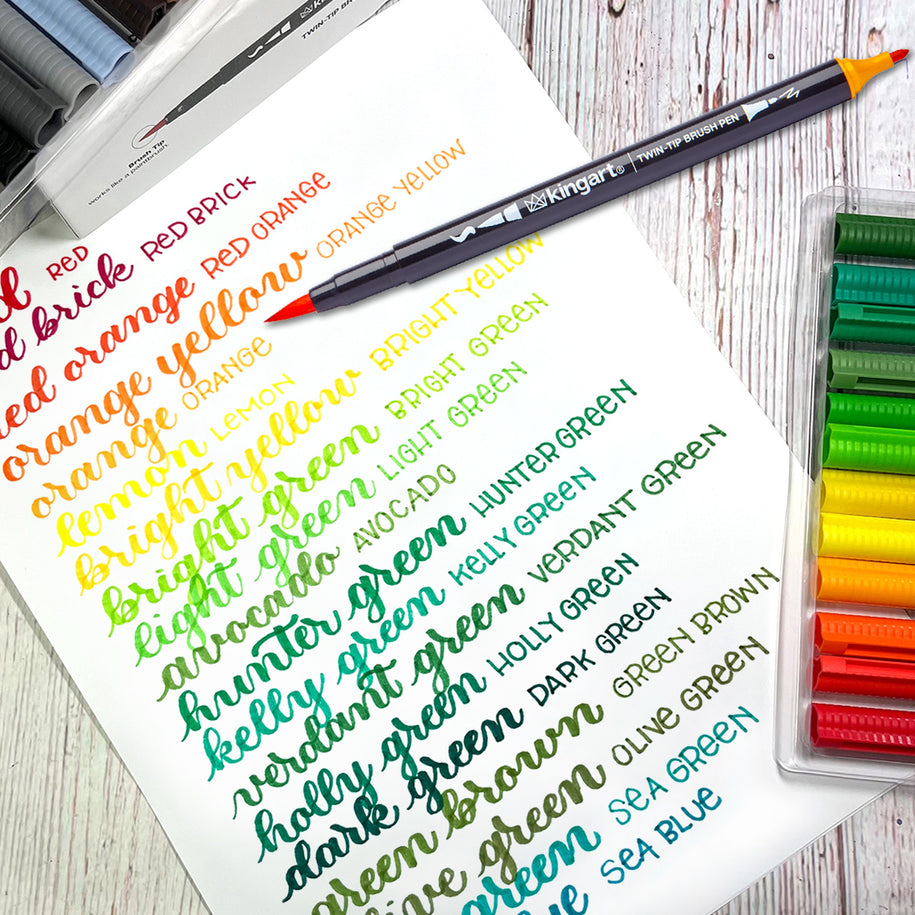 TWIN-TIP BR
Brush Tip
works like a paintbrush
kingart® | TWIN-TIP BRUSH PEN
RED
d brick RED BRICK
red orange RED ORANGE
orange yellow ORANGE YELLOW
orange ORANGE
lemon LEMON
bright yellow BRIGHT YELLOW
bright green BRIGHT GREEN
light green LIGHT GREEN
avocado AVOCADO
hunter green HUNTER GREEN
kelly green KELLY GREEN
verdant green VERDANT GREEN
holly green HOLLY GREEN
dark green DARK GREEN
green brown GREEN BROWN
live green OLIVE GREEN
green SEA GREEN
ue SEA BLUE